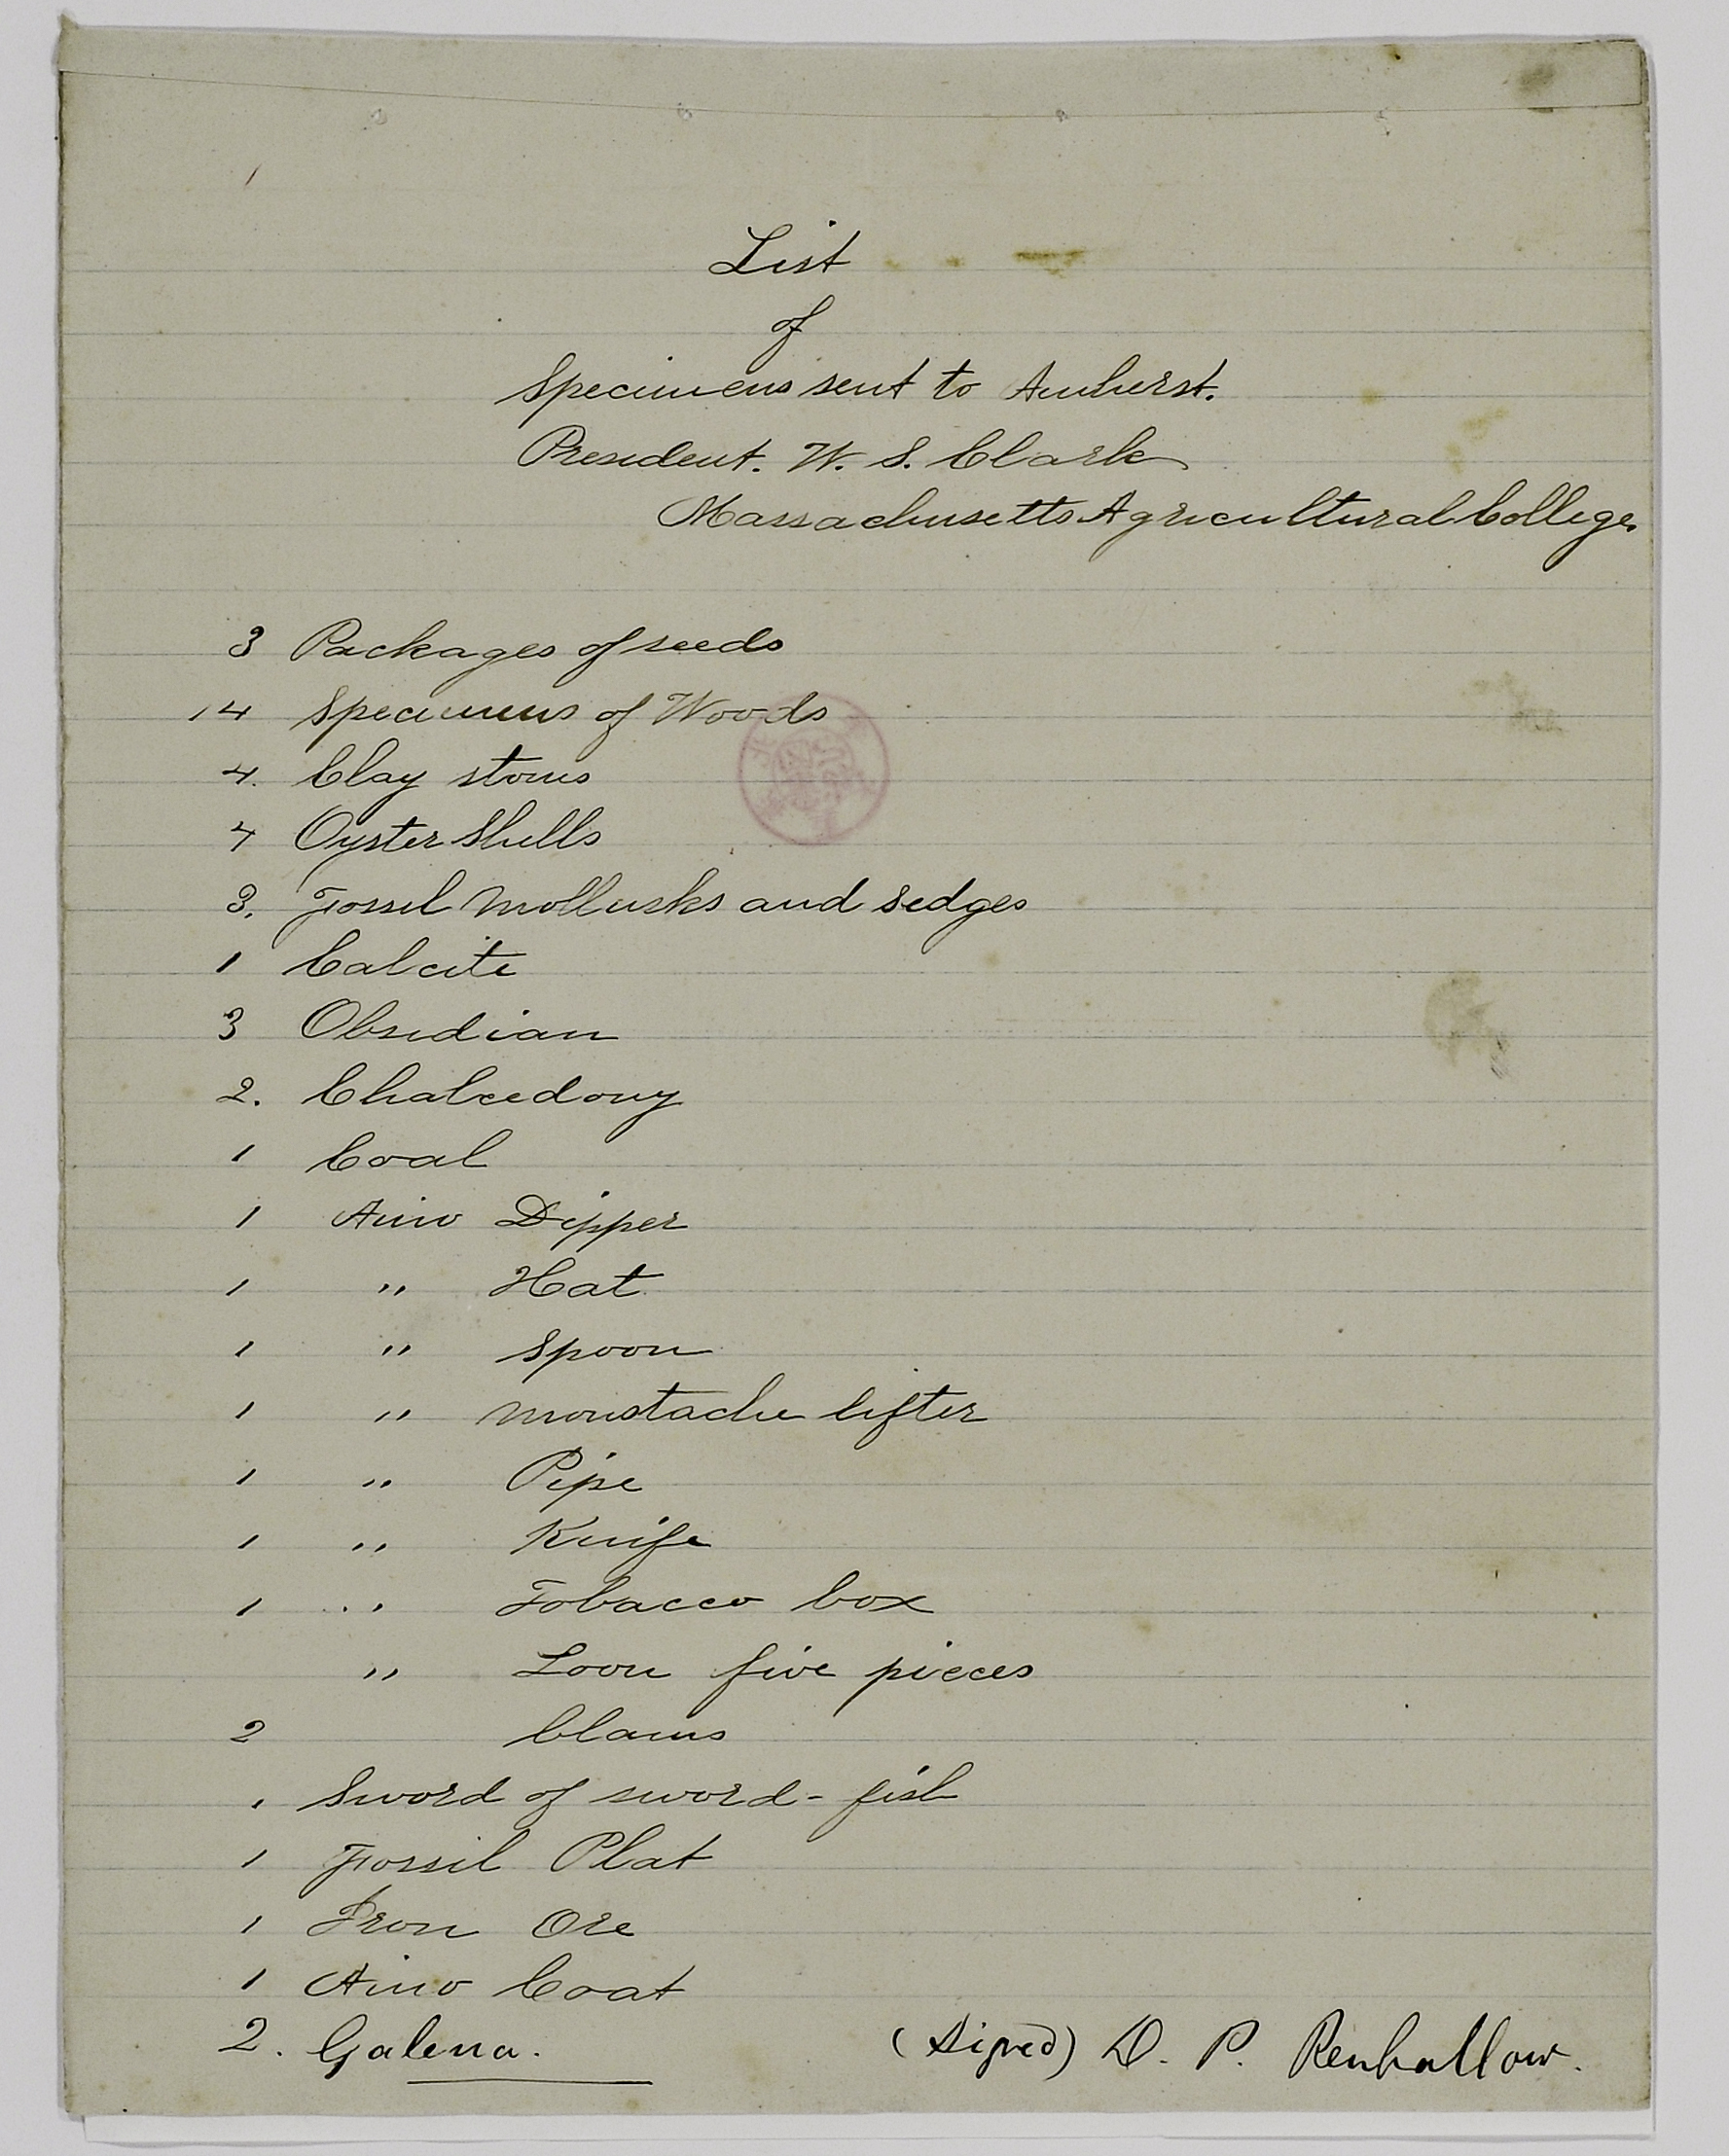 List
of
Specimens sent to Amherst.
President. W. S. Clark
Massachusetts Agricultural College.
3 Packages of seeds
14 Specimens of Woods
4. Clay stones
4 Oyster Shells
3. Fossil Mollusks and Sedges
1 Calcite
3 Obsidian
2. Chalcedony
1 Coal
1 Aino Dipper
1 " Hat
1 " Spoon
1 " Moustache lifter
1 " Pipe
1 " Knife
1 " Tobacco box
" Loom five pieces
2 Clams
1 Sword of sword-fish
1 Fossil Plat
1 Iron Ore
1 Aino Coat
2. Galena. (Signed) D. P. Penhallow.